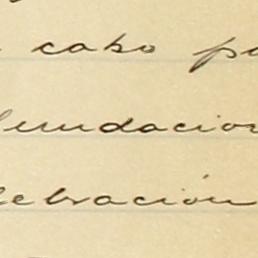 cabo pa
fundacion
lebración